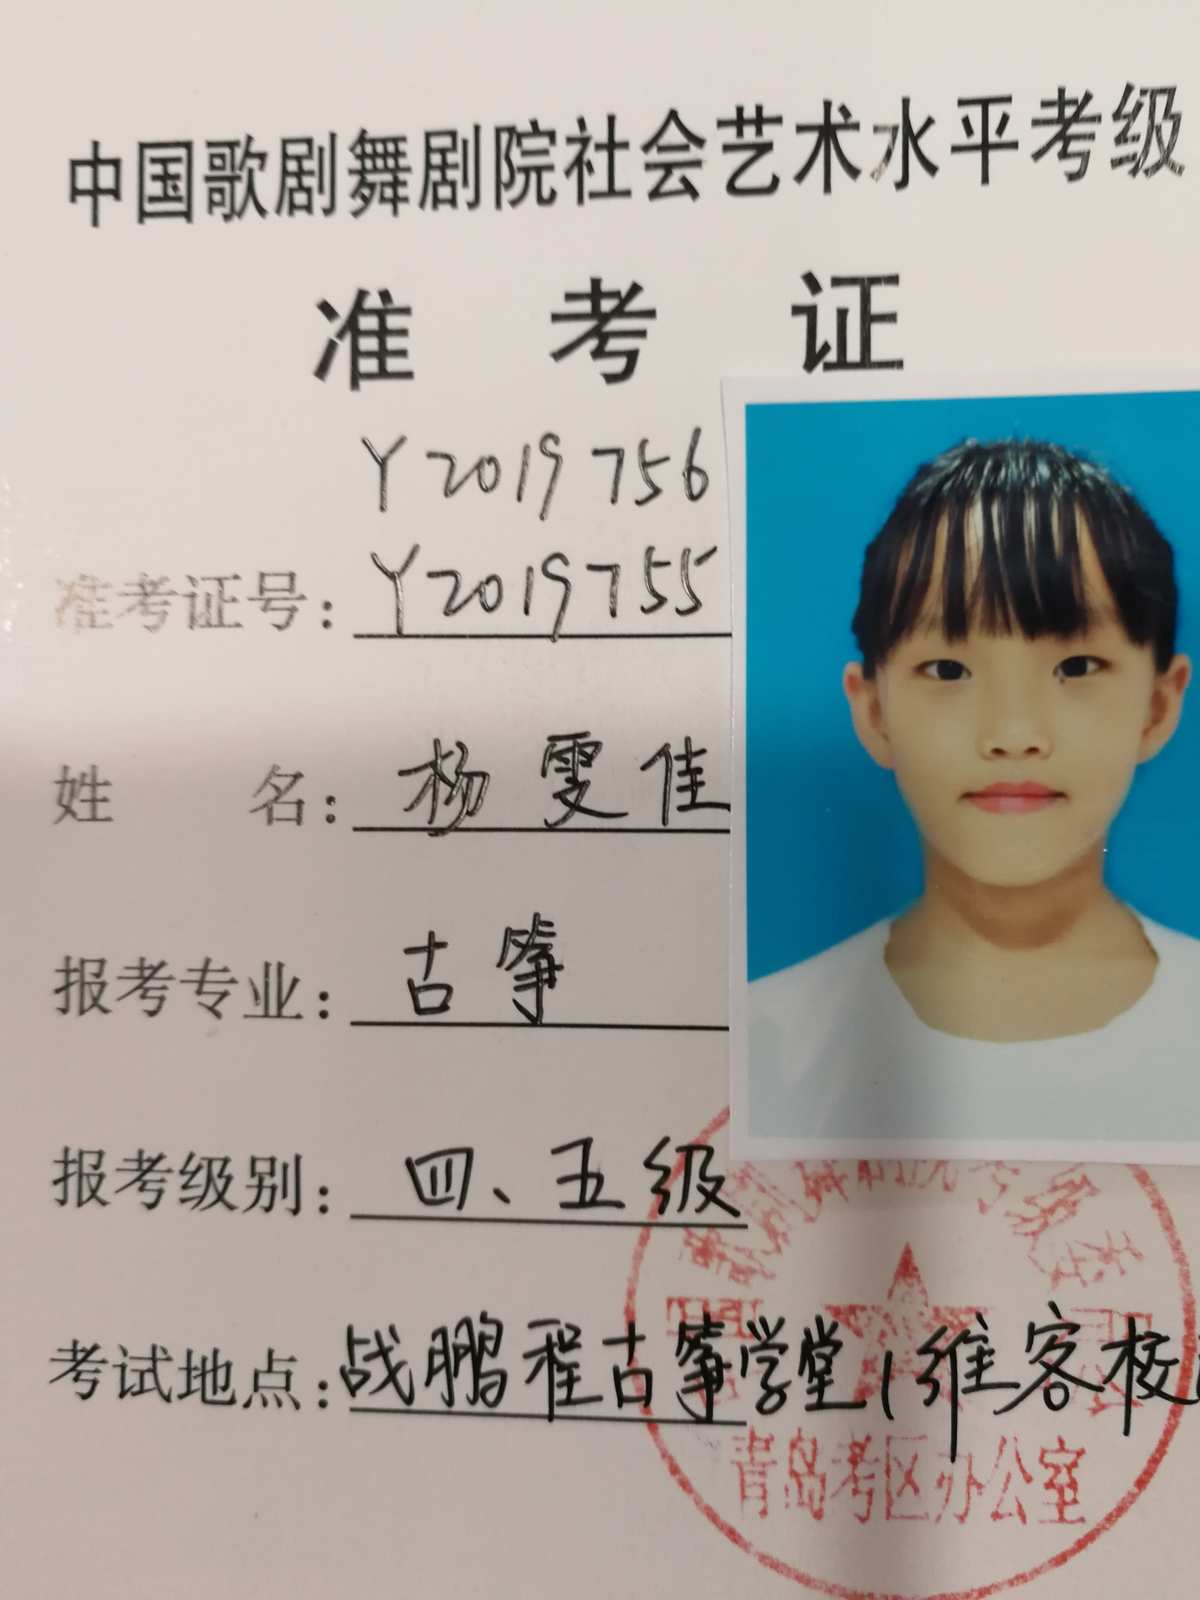 中国歌剧舞剧院社会艺术水平考级
准考证
Y2019756
准考证号：Y2019755
姓名：杨雯佳
报考专业：古筝
报考级别：四、五级
考试地点：战鹏程古筝学堂（维客校
青岛考区办公室